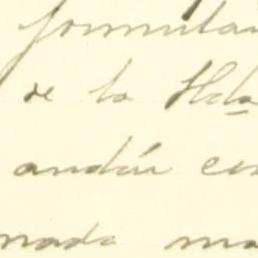 formular
de la Hda
andar en
nada ma